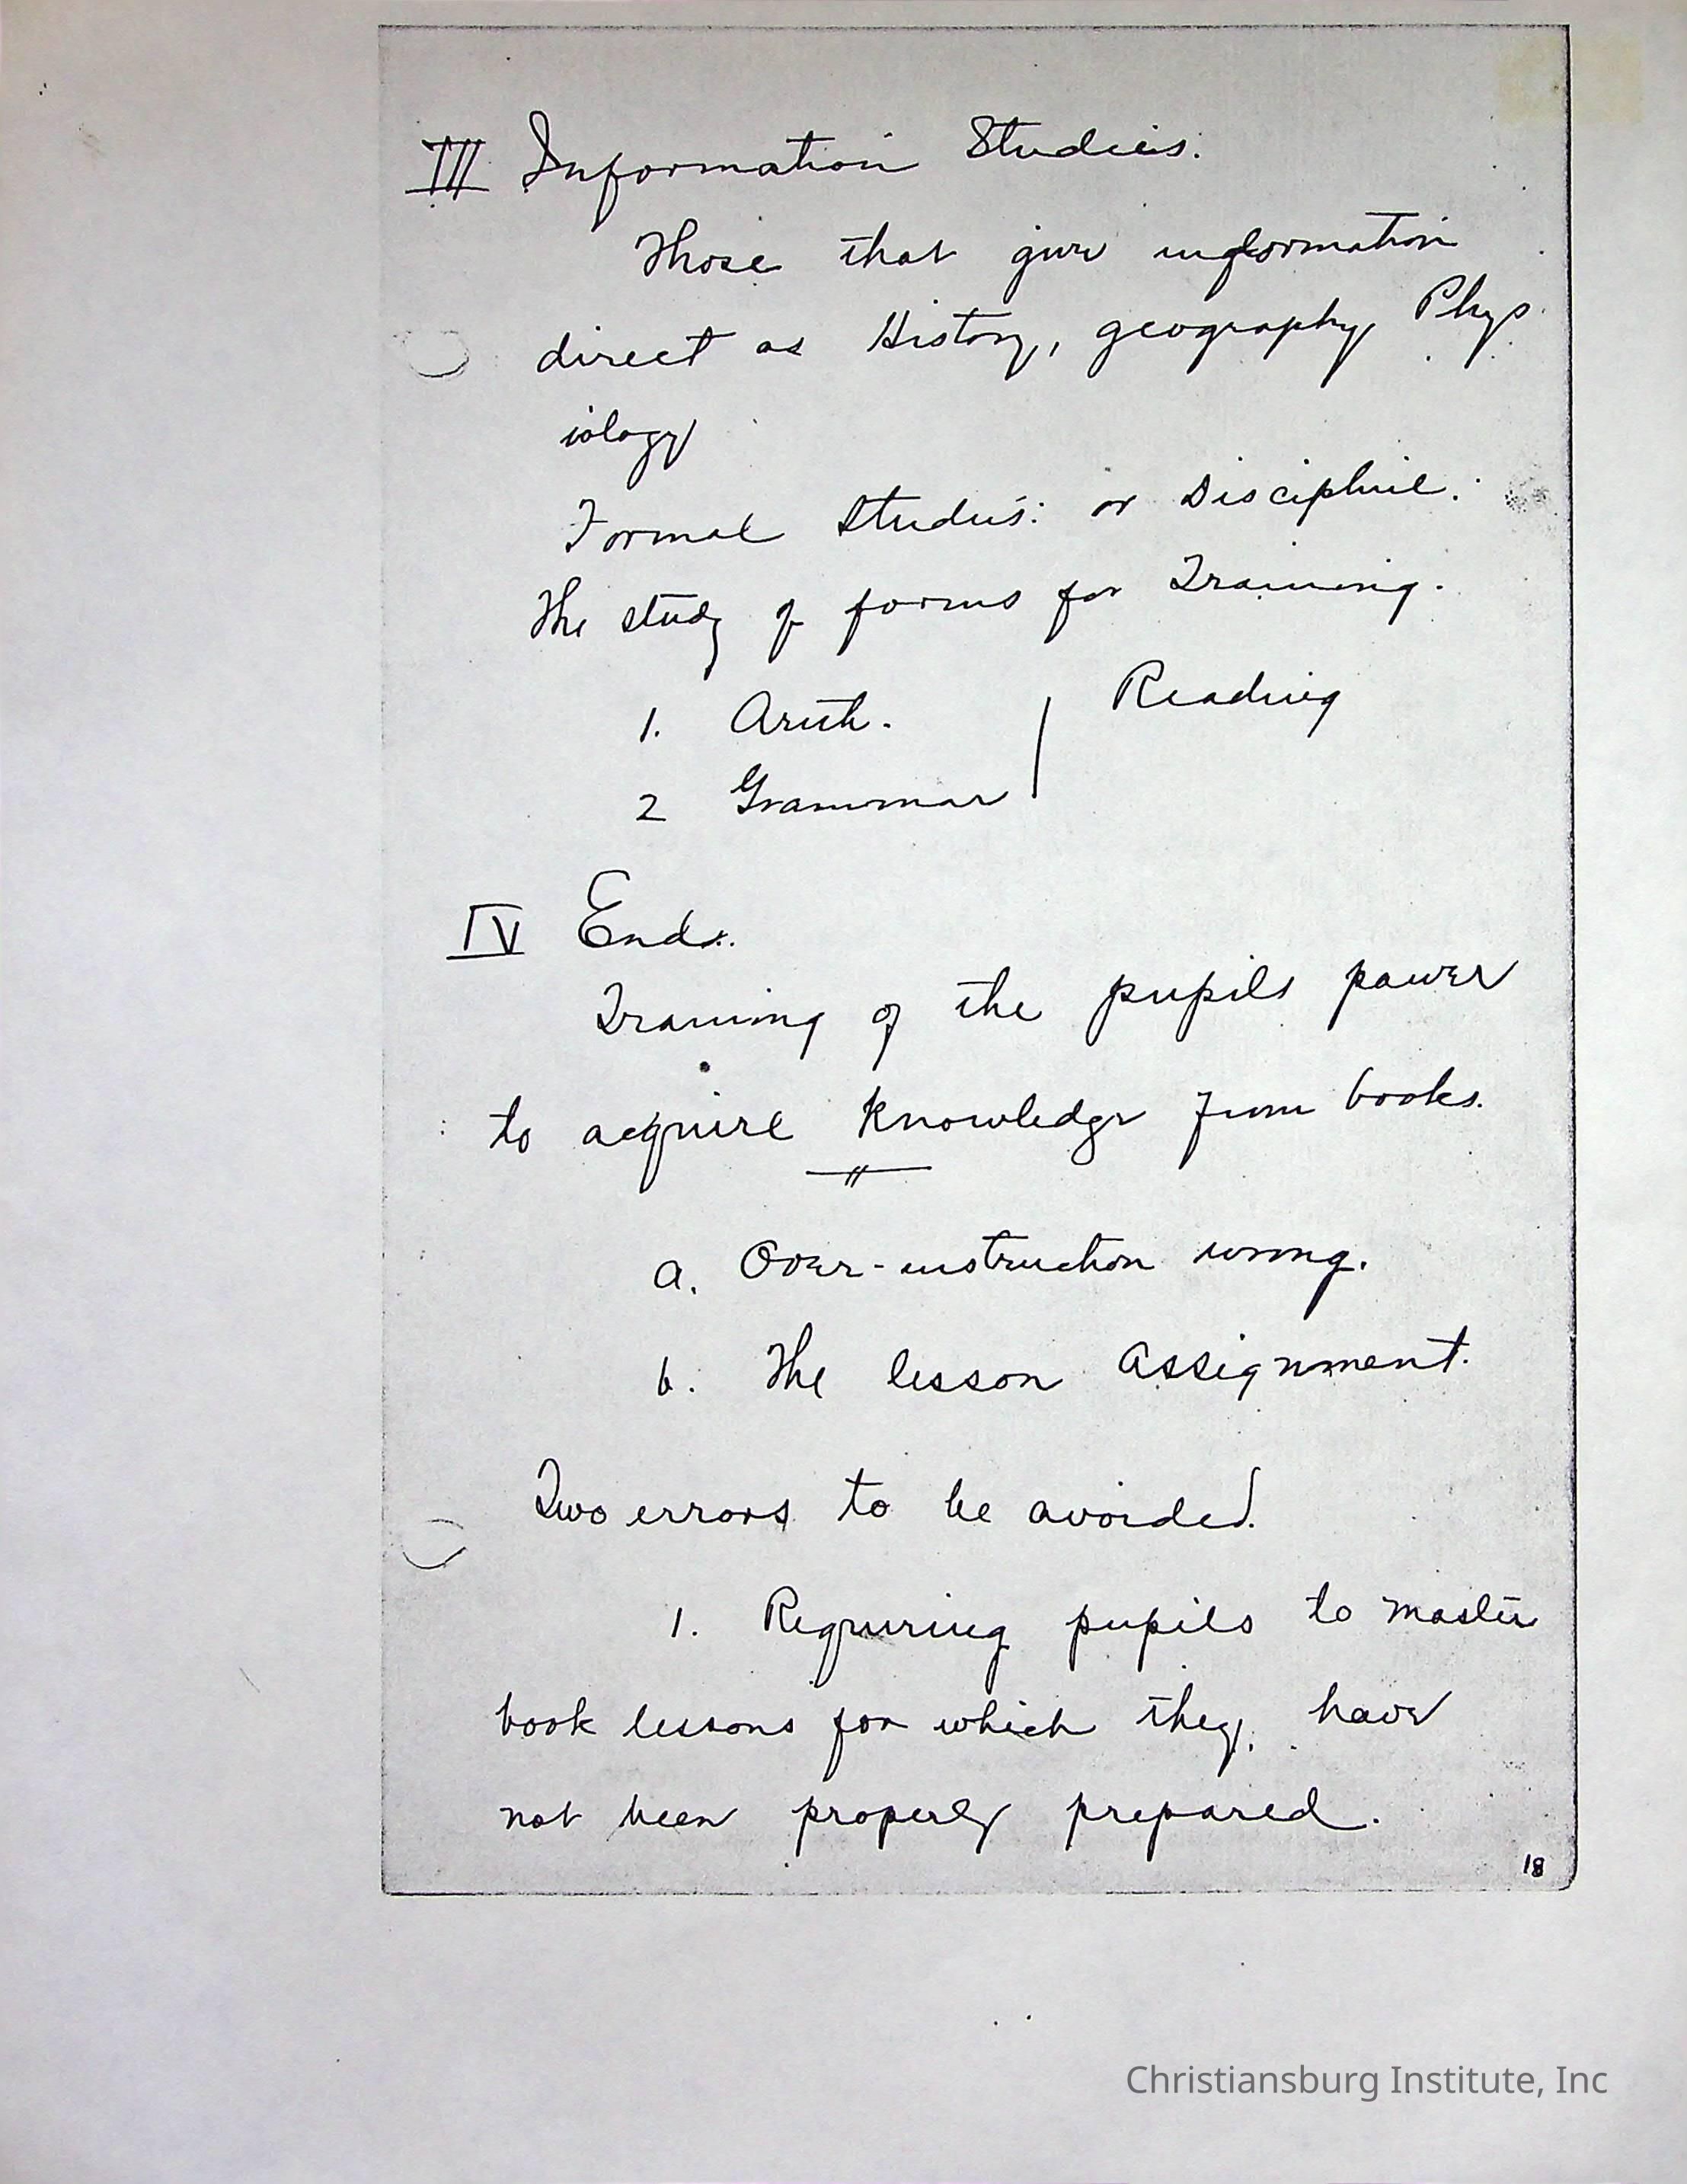 III Information Studies.
Those that give information
direct as History, geography, Phys
iology
Formal Studies: or Discipline:
The study of forms for Training.
1. Arith. | Reading
2 Grammar
IV Ends.
Training of the pupils power
to acquire knowledge from books.
a. Over-instruction wrong.
b. The lesson assignment.
Two errors to be avoided.
1. Requiring pupils to master
book lessons for which they have
not been properly prepared.
18
Christiansburg Institute, Inc